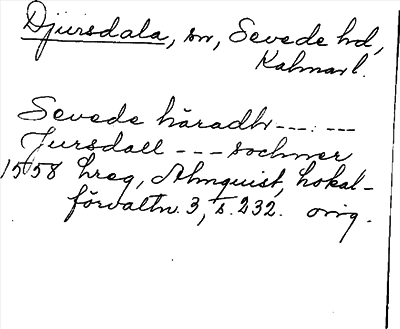 Djursdala, sn, Sevede hd,
Kalmar l.
Sevede häradh --- . ---
Jursdall --- sochner
1558 hreg, Almquist, Lokal-
förvaltn. 3, s. 232. orig.